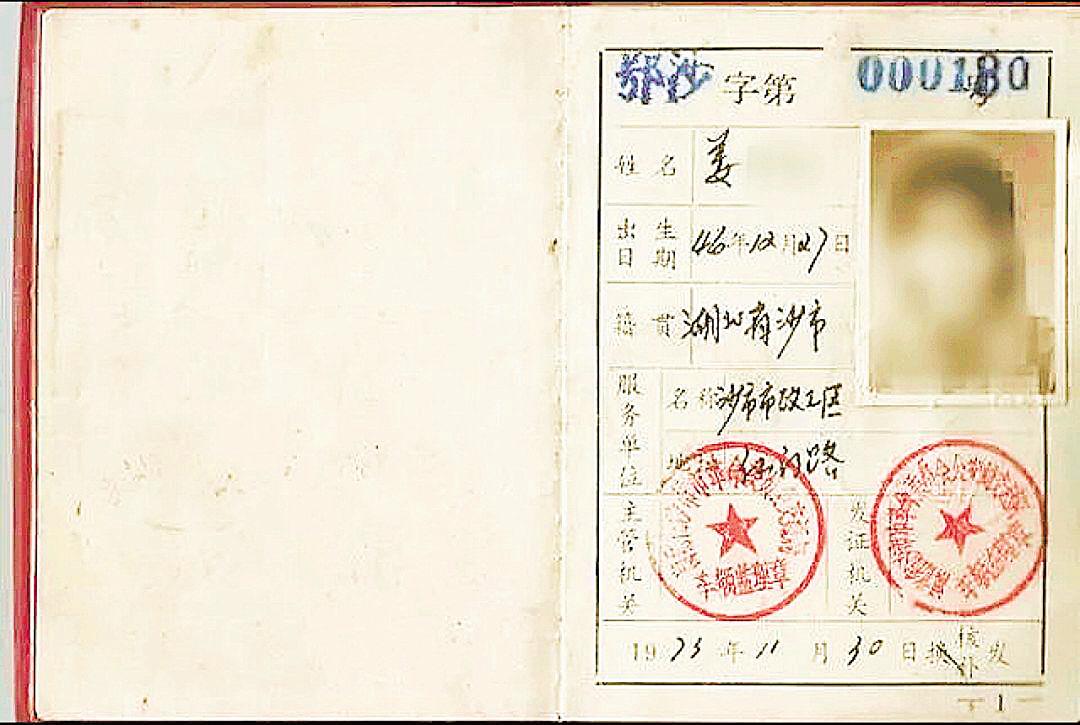 鄂沙 字第 000180 号
姓名 姜
出生日期 46年12月27日
籍贯 湖北省沙市
服务单位 名称 沙市市政工区
地址 路
主管机关 车辆监理章
发证机关
1973年11月30日换 核补 发
1